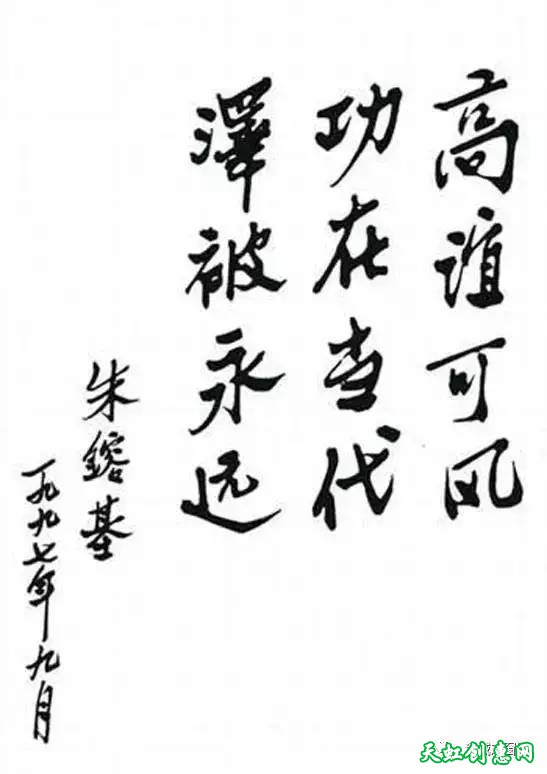 高谊可风
功在当代
澤被永远
朱鎔基
一九九七年九月
天虹创意网